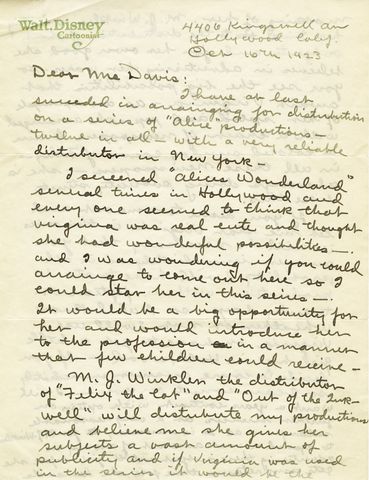 Walt. Disney
Cartoonist
4406 Kingswell Av
Hollywood Calif.
Oct 16th 1923
Dear Mrs Davis:
I have at last
succeeded in arranging for distribution
on a series of "Alice" productions—
twelve in all — with a very reliable
distributor in New York —
I screened "Alices Wonderland"
several times in Hollywood and
every one seemed to think that
Virginia was real cute and thought
she had wonderful possibilities —.
and I was wondering if you would
arrainge to come out here so I
could star her in this series —.
It would be a big opportunity for
her and would introduce her
to the profession in a manner
that few children could receive —
M. J. Winkler the distributor
of "Felix the Cat" and "Out of the Ink-
well" will distribute my productions
and believe me she gives her
subjects a vast amount of
publicity and if Virginia was used
in the series it would be the